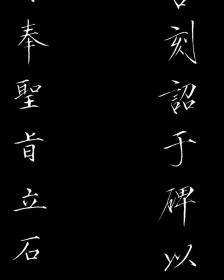 刻詔于碑以
奉聖旨立石